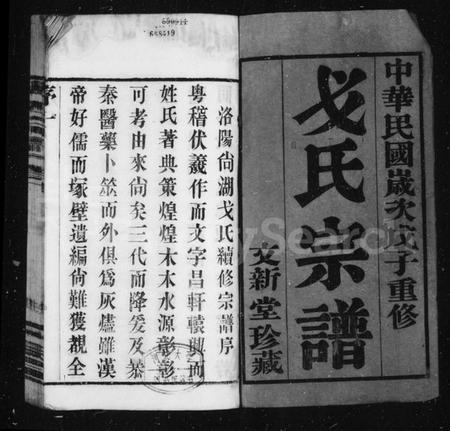 中華民國歲次戊子重修
戈氏宗譜
文新堂珍藏
洛陽尚湖戈氏續修宗譜序
粵稽伏羲作而文字昌軒轅興而
姓氏著典策煌煌木木水源彰彰
可考由來尚矣三代而降爰及暴
秦醫藥卜筮而外俱爲灰燼雖漢
帝好儒而塚壁遺編尚難獲覩全
序一